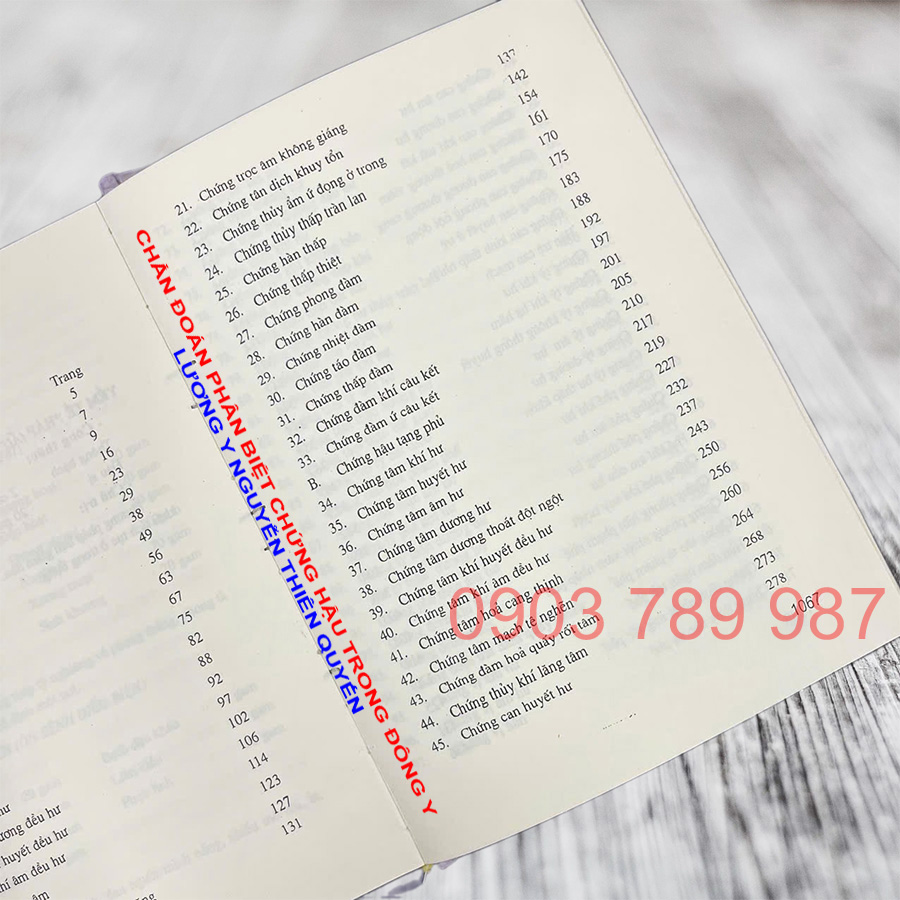 Trang
5
7
9
16
23
29
38
49
56
63
67
75
82
88
92
97
102
106
114
123
127
131
hư
ương đều hư
huyết đều hư
hí âm đều hư
âm
CHẨN ĐOÁN PHÂN BIỆT CHỨNG HẬU TRONG ĐÔNG Y
LƯƠNG Y NGUYỄN THIÊN QUYẾN
21. Chứng trọc âm không giáng 137
22. Chứng tân dịch khuy tổn 142
23. Chứng thủy ẩm ứ đọng ở trong 154
24. Chứng thủy thấp tràn lan 161
25. Chứng hàn thấp 170
26. Chứng thấp thiệt 175
27. Chứng phong đàm 183
28. Chứng hàn đàm 188
29. Chứng nhiệt đàm 192
30. Chứng táo đàm 197
31. Chứng thấp đàm 201
32. Chứng đàm khí câu kết 205
33. Chứng đàm ứ câu kết 210
B. Chứng hậu tạng phủ 217
34. Chứng tâm khí hư 219
35. Chứng tâm huyết hư 227
36. Chứng tâm âm hư 232
37. Chứng tâm dương hư 237
38. Chứng tâm dương thoát đột ngột 243
39. Chứng tâm khí huyết đều hư 250
40. Chứng tâm khí âm đều hư 256
41. Chứng tâm hoả cang thịnh 260
42. Chứng tâm mạch tê nghẽn 264
43. Chứng đàm hoả quấy rối tâm 268
44. Chứng thủy khí lăng tâm 273
45. Chứng can huyết hư 278
1067
0903 789 987